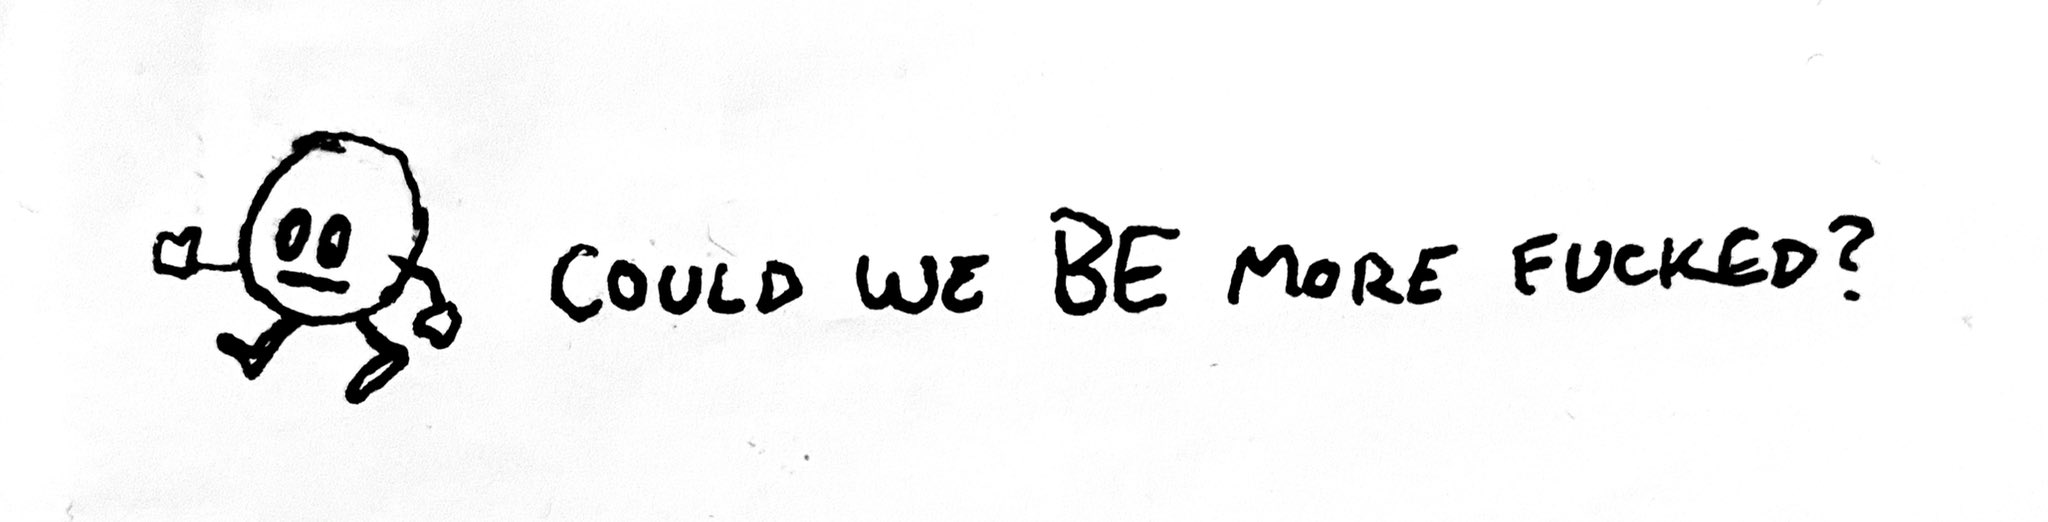 COULD WE BE MORE FUCKED?